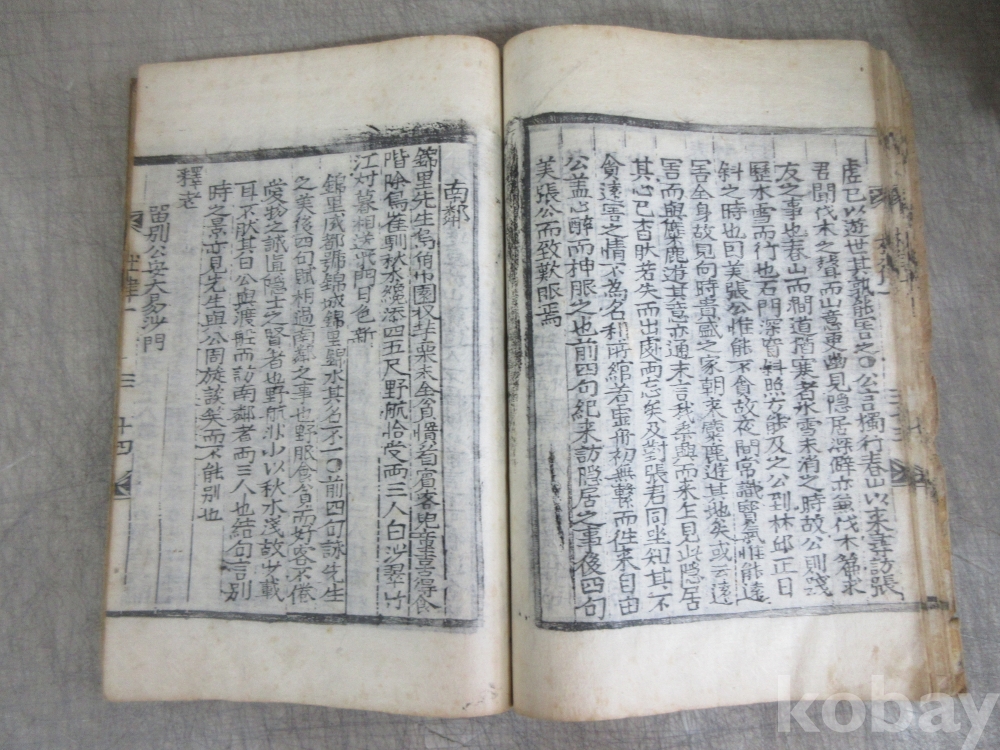 虚己以遊世其孰能害之○公言獨行春山以來尋訪張
君聞伐木之聲而山意更幽見隱居深僻亦兼伐木篇求
友之事也春山而澗道猶寒者氷雪未消之時故公則踐
歷氷雪而行也石門深窅斜照方能及之公到林邱正日
斜之時也因美張公惟能不貪故夜間常識寶氣惟能遠
害全身故見向時貴盛之家朝來麋鹿遊其地矣或云遠
害而與麋鹿遊其意亦通末言我乘興而來生見此隱居
其心已杳肰若失而出處两忘矣及對張君同坐知其不
貪遠害之情不為名利所綰若虛舟初無繫而任來自由
公盖心醉而神服之也前四句紀來訪隐居之事後四句
美張公而致歎服焉
南鄰
錦里先生烏角巾園收芋栗未全貧慣看賓客兒童喜得食
階除鳥雀馴秋水纔添四五尺野航恰受两三人白沙翠竹
江村暮相送柴門月色新
錦里成都號錦城錦里錦水其名不一○前四句詠先生
之美後四句賦相過南鄰之事也野服食貧而好客不倦
愛物之誠眞隱士之賢者也野航非小以秋水淺故少載
耳不肰其日公與渡船而訪南鄰者两三人也結句言别
時之景亦見先生與公周旋談笑而不能别也
釋老
留别公安大易沙門
kobay